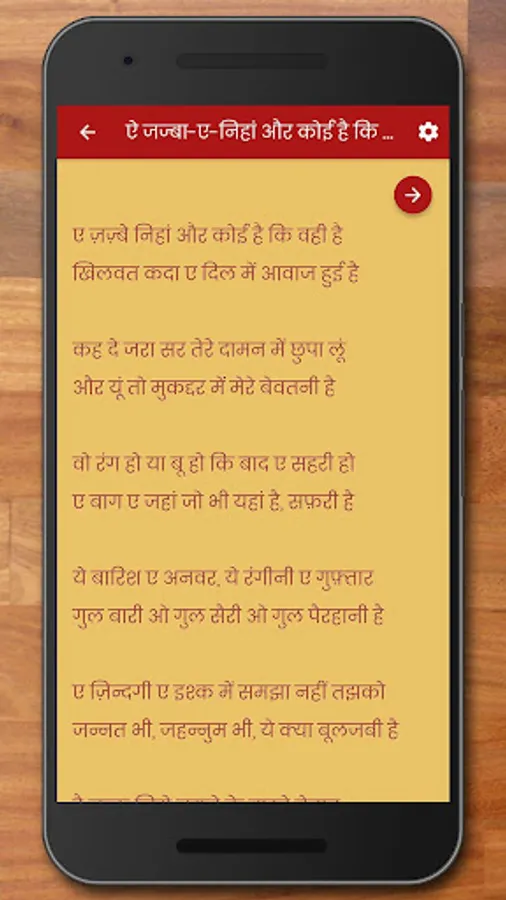 ऐ जज्बा-ए-निहां और कोई है कि ...
ए ज़ज़्बे निहां और कोई है कि वही है
खिलवत कदा ए दिल में आवाज हुई है
कह दे जरा सर तेरे दामन में छुपा लूं
और यूं तो मुकद्दर में मेरे बेवतनी है
वो रंग हो या बू हो कि बाद ए सहरी हो
ए बाग ए जहां जो भी यहां है, सफ़री है
ये बारिश ए अनवर, ये रंगीनी ए गुफ़्तार
गुल बारी ओ गुल सैरी ओ गुल पैरहानी है
ए ज़िन्दगी ए इश्क में समझा नहीं तझको
जन्नत भी, जहन्नुम भी, ये क्या बूलजबी है